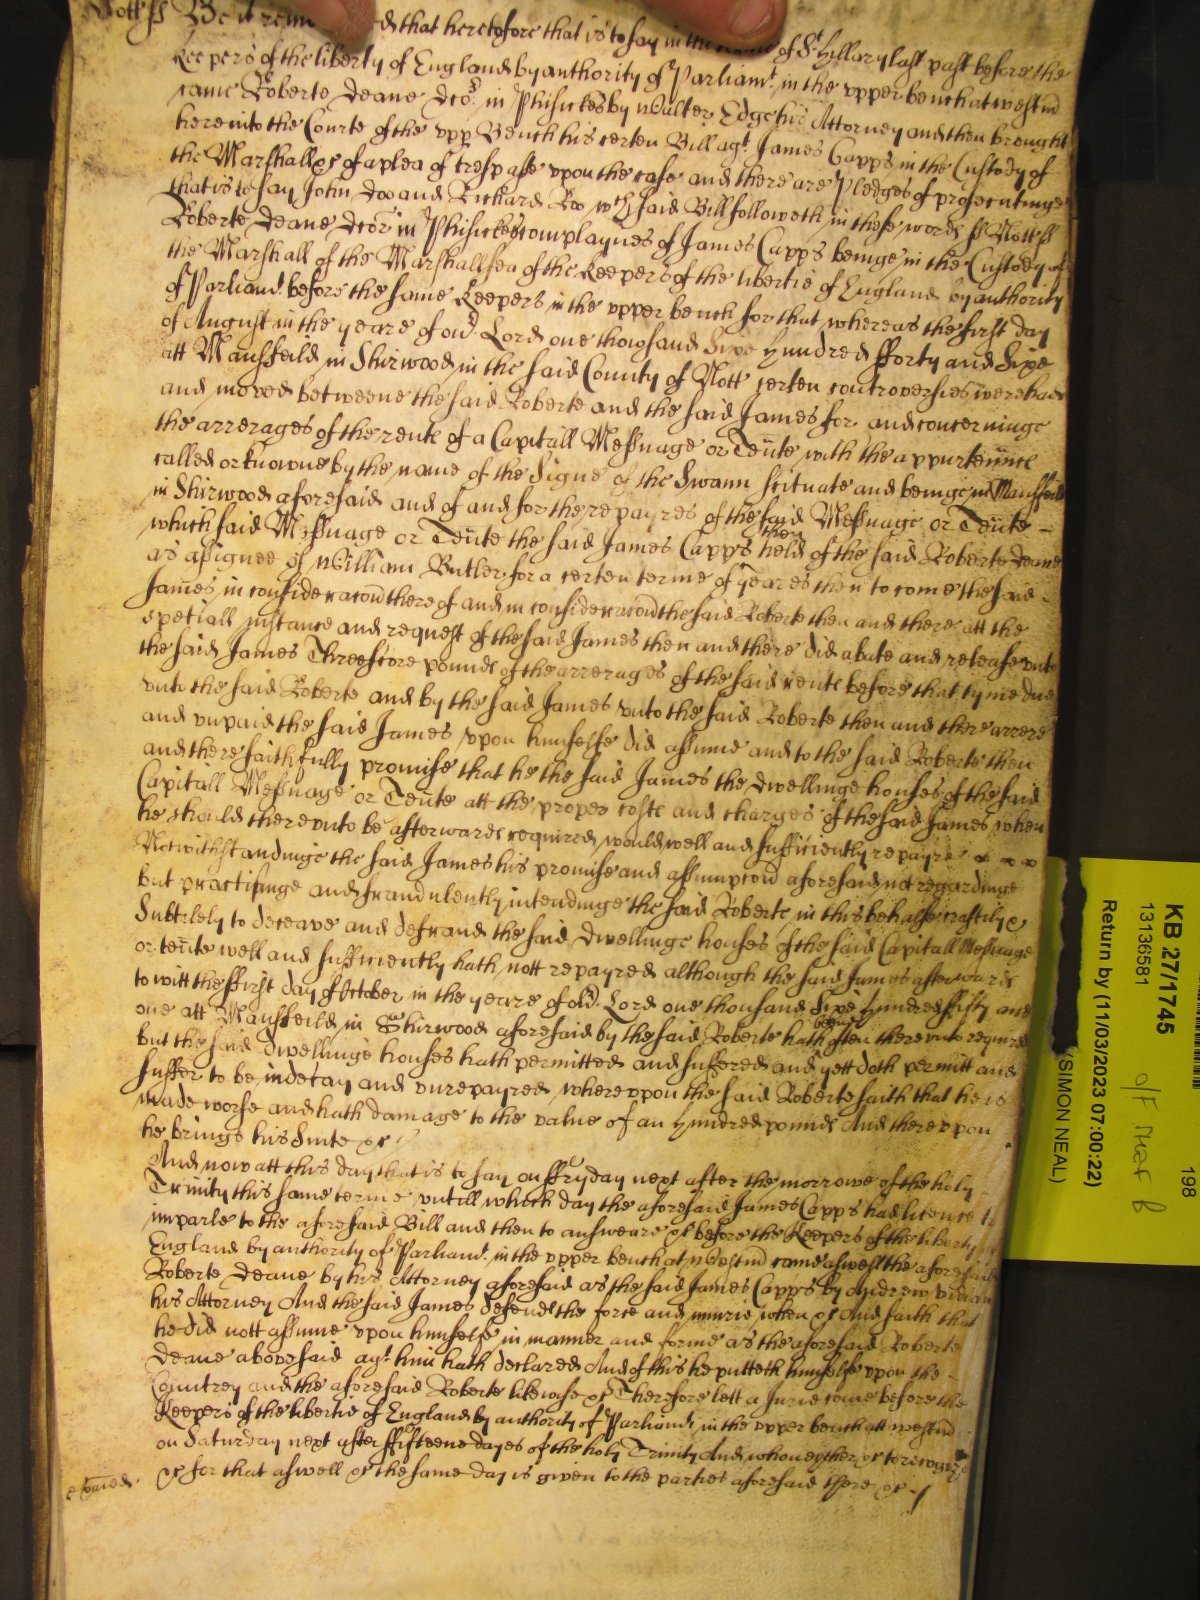 Nott ss Be it rem d that heretofore that is to say in the of St Hillary last past before the
Keepers of the liberty of England by authority of Parliamt. in the upper bench at westm
came Roberte Deane Dcor. in Phisicke by Walter Edge his Attorney and then brought
here into the Courte of the upp Bench his certen Bill agt. James Capps in the Custody of
the Marshall &c of a plea of trespasse upon the case and there are pledges of prosecutinge
that is to say John Doo and Richard Roo wch said Bill followeth in these words ss Nott ss
Roberte Deane Dcor in Phisicke complaynes of James Capps beinge in the Custody of
the Marshall of the Marshallsea of the Keepers of the libertie of England by authority
of Parliamt. before the same Keepers in the upper bench for that whereas the first day
of August in the yeare of our Lord one thowsand Sixe hundred fforty and Sixe
att Mansfeild in Shirwood in the said County of Nott certen controversies were had
and moved betweene the said Roberte and the said James for and concerninge
the arrerages of the rente of a Capitall Messuage or Tente with the appurtennce
called or knowne by the name of the Signe of the Swann scituate and beinge in Mansfeild
in Shirwood aforesaid and of and for the repayres of the said Messuage or Tente
which said Messuage or Tente the said James Capps then held of the said Roberte Deane
as assignee of William Butler for a certen terme of yeares then to come the said
James in consideracon thereof and in consideracon the said Roberte then and there att the
spetiall instance and request of the said James then and there did abate and release unto
the said James Threescore pounds of the arrerages of the said rente before that tyme due
unto the said Roberte and by the said James unto the said Roberte then and there arrere
and unpaid the said James upon himselfe did assume and to the said Roberte then
and there faithfully promise that he the said James the dwellinge houses of the said
Capitall Messuage or Tente att the proper coste and charges of the said James when
he should thereunto be afterwards required would well and sufficiently repayre
Notwithstandinge the said James his promise and assumpcon aforesaid not regardinge
but practisinge and fraudulently intendinge the said Roberte in this behalfe craftily &
Subtilely to deceave and defraud the said dwellinge houses of the said Capitall Messuage
or tente well and sufficiently hath nott repayred although the said James afterwards
to witt the first day of October in the yeare of our Lord one thousand Sixe hundred ffifty and
one att Mansfeild in Shirwood aforesaid by the said Roberte hath often thereunto required
but the said dwellinge houses hath permitted and suffered and yett doth permitt and
suffer to be in decay and unrepayred whereupon the said Roberte saith that he is
made worse and hath damage to the value of an hundred pounds And thereupon
he brings his Suite &c
And now att this day that is to say on ffryday next after the morrowe of the holy
Trinity this same terme untill which day the aforesaid James Capps had licence to
imparle to the aforesaid Bill and then to answeare &c before the Keepers of the liberty
England by authority of Parliamt. in the upper bench at Westm came aswell the aforesaid
Roberte Deane by his Attorney aforesaid as the said James Capps by Andrew Vivian
his Attorney And the said James defends the force and iniurie when &c And saith that
he did nott assume upon himselfe in manner and forme as the aforesaid Roberte
Deane abovesaid agt. him hath declared And of this he putteth himselfe upon the
Countrey and the aforesaid Roberte likewise &c Therefore lett a Jurie come before the
Keepers of the libertie of England by authority of Parliamt. in the upper bench att westm
on Saturday next after ffifteene dayes of the holy Trinity And who neyther &c to recognize
&c for that aswell &c the same day is given to the parties aforesaid there &c
KB 27/1745
13136581
o/F
198
Return by (11/03/2023 07:00:22)
(SIMON NEAL)